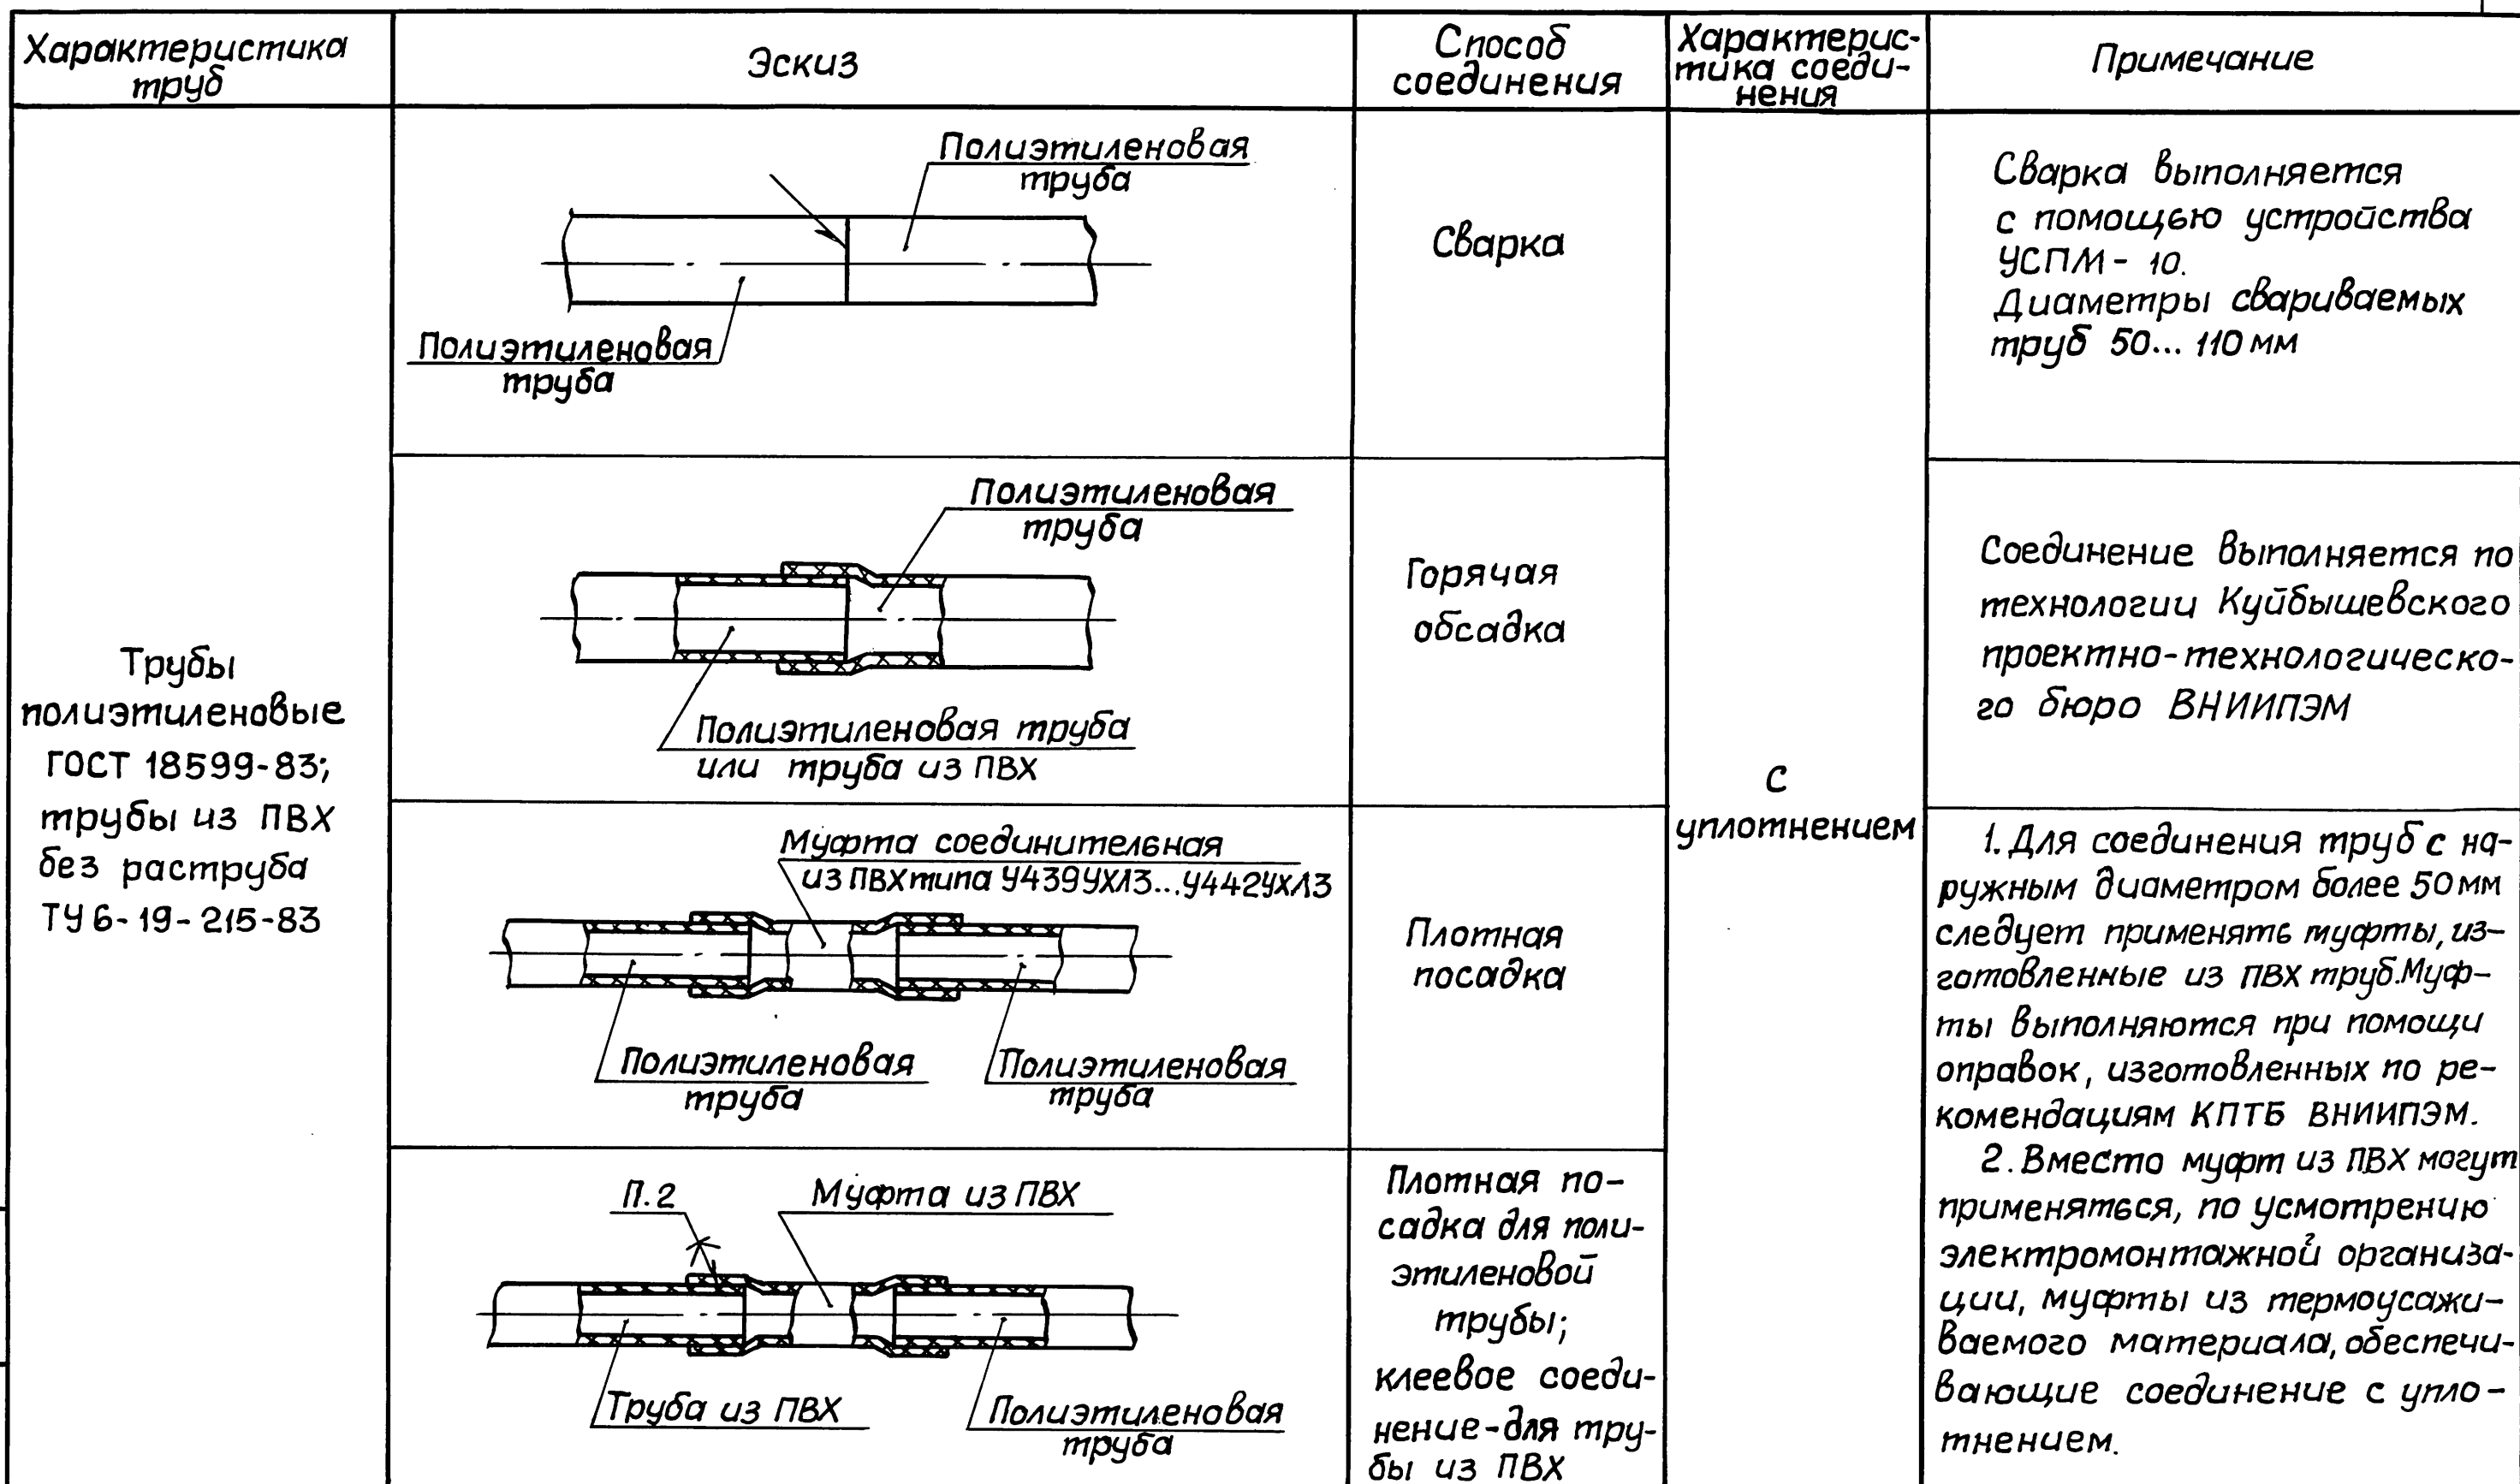 Характеристика
труб
Эскиз
Способ
соединения
Характерис-
тика соеди-
нения
Примечание
Трубы
полиэтиленовые
ГОСТ 18599-83;
трубы из ПВХ
без раструба
ТУ 6-19-215-83
Полиэтиленовая
труба
Полиэтиленовая
труба
Сварка
С
уплотнением
Сварка выполняется
с помощью устройства
УСПМ-10.
Диаметры свариваемых
труб 50...110 мм
Полиэтиленовая
труба
Полиэтиленовая труба
или труба из ПВХ
Горячая
обсадка
Соединение выполняется по
технологии Куйбышевского
проектно-технологическо-
го бюро ВНИИПЭМ
Муфта соединительная
из ПВХ типа У439УХЛ3...У442УХЛ3
Полиэтиленовая
труба
Полиэтиленовая
труба
Плотная
посадка
1. Для соединения труб с на-
ружным диаметром более 50 мм
следует применять муфты, из-
готовленные из ПВХ труб. Муф-
ты выполняются при помощи
оправок, изготовленных по ре-
комендациям КПТБ ВНИИПЭМ.
2. Вместо муфт из ПВХ могут
применяться, по усмотрению
электромонтажной организа-
ции, муфты из термоусажи-
ваемого материала, обеспечи-
вающие соединение с упло-
тнением.
П.2
Муфта из ПВХ
Труба из ПВХ
Полиэтиленовая
труба
Плотная по-
садка для поли-
этиленовой
трубы;
клеевое соеди-
нение-для тру-
бы из ПВХ